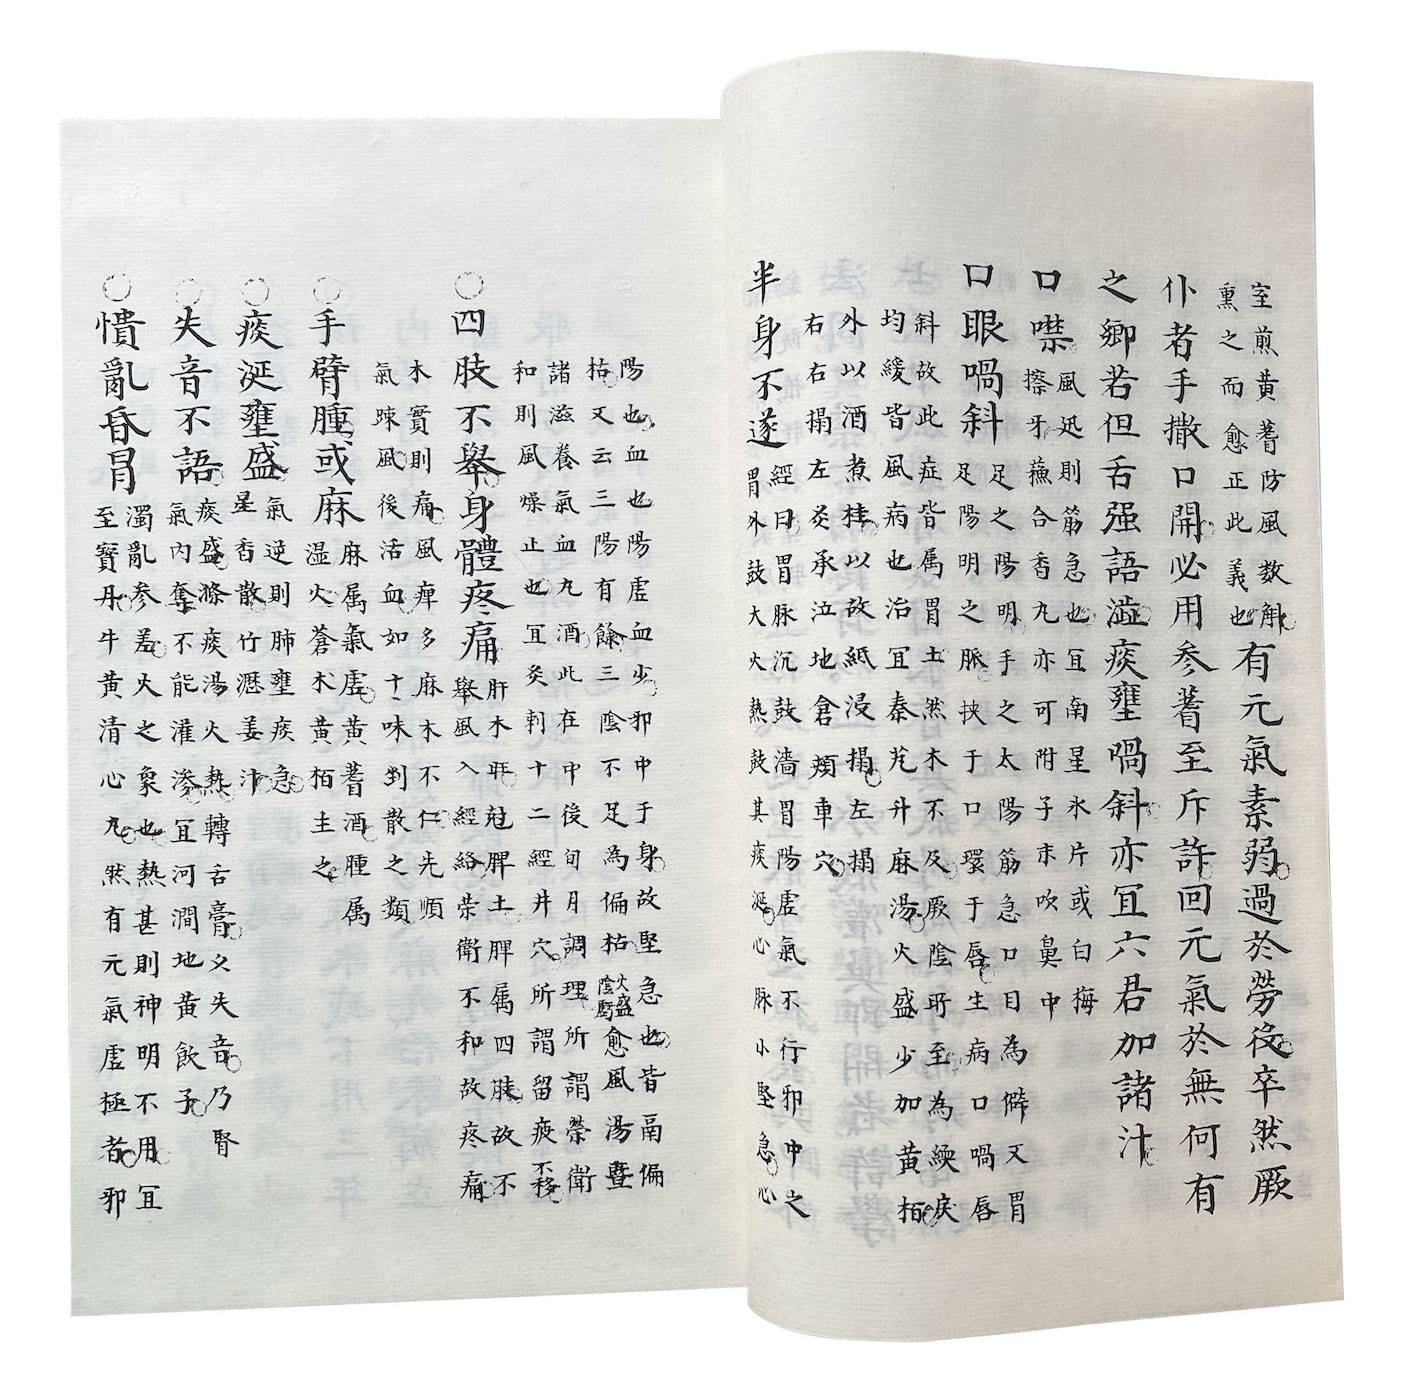 室煎黃蓍防風数斛
熏之而愈正此義也
有元氣素弱過於勞役卒然厥
仆者手撒口開必用参蓍至斥許回元氣於無何有
之鄉若但舌强語澁痰壅喎斜亦冝六君加諸汁
口噤
風迅則筋急也冝南星氷片或白梅
擦牙蘸合香丸亦可附子末吹鼻中
口眼喎斜
足之陽明手之太陽筋急口目為僻又胃
足陽明之脈挾于口環于唇生病口喎唇
斜故此症皆属胃土然木不及厥陰所至為緛戾
均緩皆風病也治冝秦艽升麻湯火盛少加黃栢
外以酒煮桂以故紙浸搨左搨
右右搨左灸承泣地倉頰車穴
半身不遂
經曰胃脈沉鼓濇胃陽虛氣不行邪中之
胃外鼓大火熱鼓其痰涎心脈小堅急心
陽也血也陽虛血少邪中于身故堅急也皆鬲偏
枯又云三陽有餘三陰不足為偏枯火盛陰虧愈風湯暨
諸滋養氣血丸酒此在中後旬月調理所謂榮衛
和則風燥止也冝灸刺十二經井穴所謂留疲不移
四肢不舉身體疼痛
肝木旺尅脾土脾属四肢故不
舉風入經絡荣衛不和故疼痛
木實則痛風痺多麻木不仁先順
氣踈風後活血如十味剉散之類
手臂腫或麻
麻属氣虛黃蓍酒腫属
湿火蒼朮黃栢主之
痰涎壅盛
氣逆則肺壅痰急
星香散竹瀝姜汁
失音不語
痰盛滌痰湯火熱轉舌膏又失音乃腎
氣內奪不能灌滲冝河澗地黃飲子
憒亂昏冒
濁亂参差火之象也熱甚則神明不用冝
至寳丹牛黃清心丸然有元氣虛極者邪